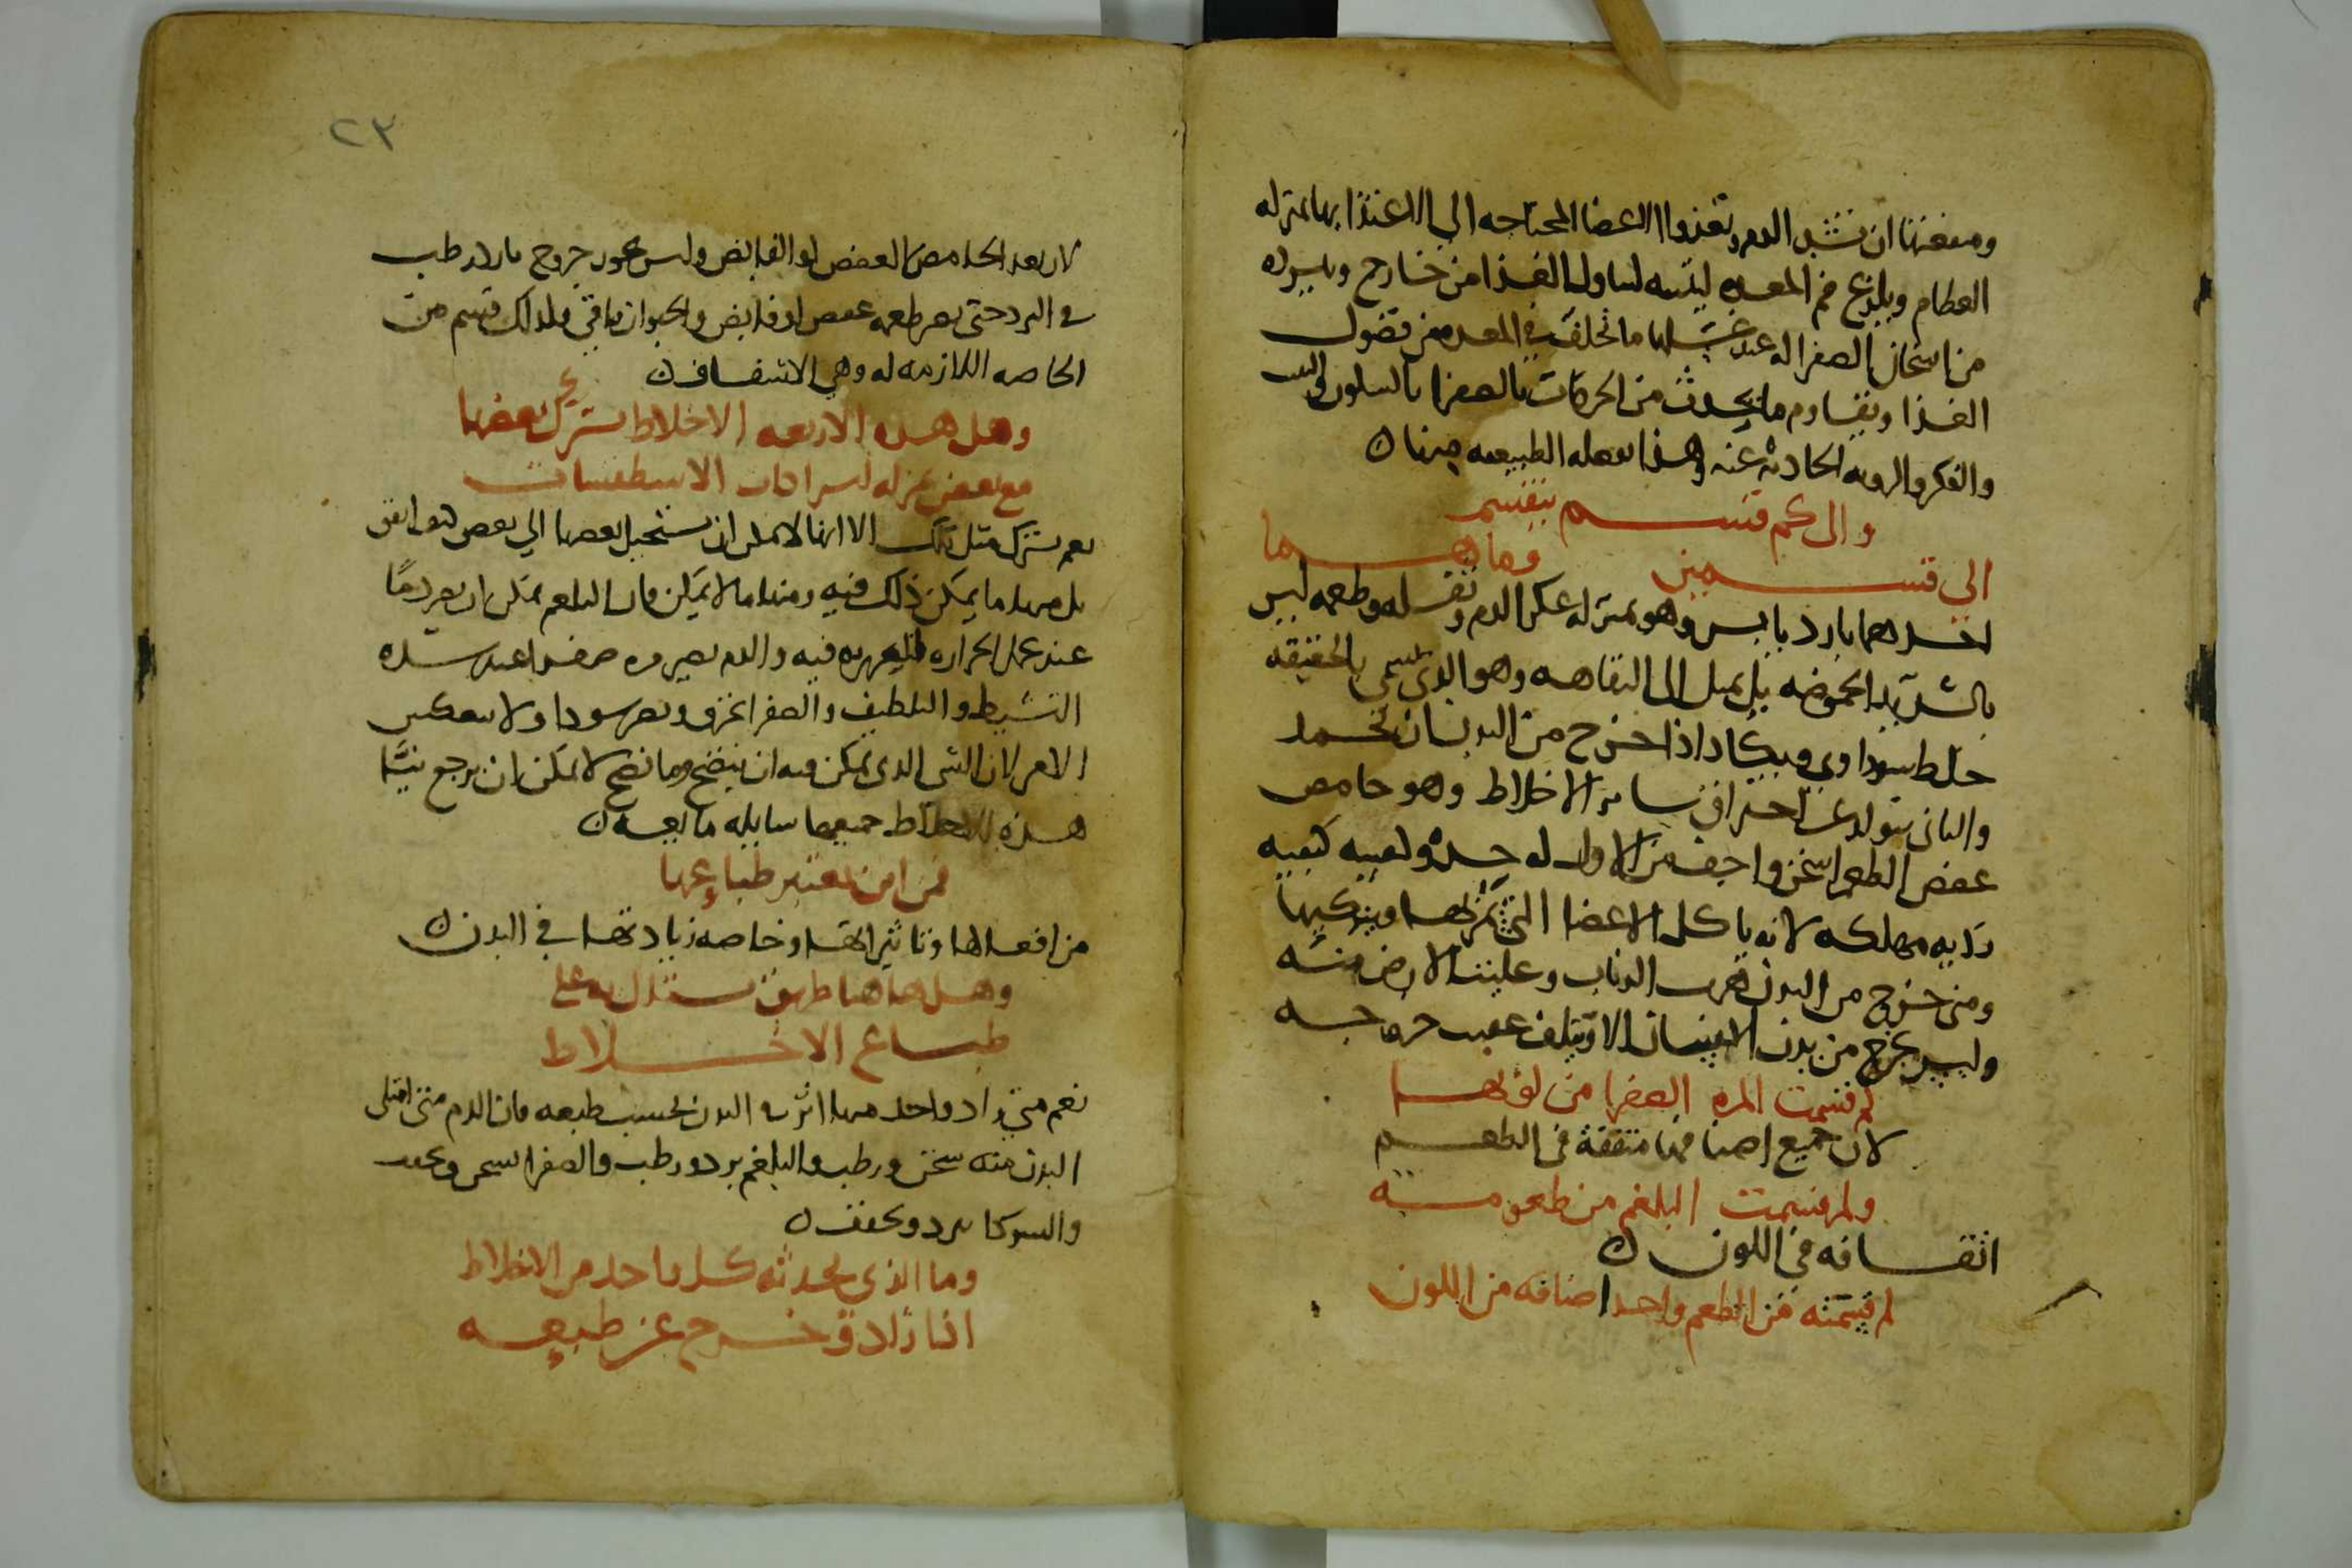 ومنفعتها ان تشد الدم وتغذوا الاعضا المحتاجه الي الاغتذا بها بمنزله
العظام ويلذع فم المعده لينبه لتناول الغذا من خارج ويسيره
من اسخان الصفرا له عند غسلها ما تخلف في المعده من فضول
الغذا ويقاوم ما يحدث من الحركات بالصفرا بالسكون
والفكر والرويه الحادثه عنه وهذا تفعله الطبيعه
والى كم قسم ينقسم
الى قسمين وما هما
احدهما بارد يابس وهو بمنزله عكر الدم وثفله وطعمه ليس
بالشديد الحموضه بل يميل الى التفاهه وهو الذي يسمي بالحقيقه
خلط سوداوي ويكاد اذا خرج من البدن ان يجمد
والثاني يتولد عن احتراق ساير الاخلاط وهو حامص
عفص الطعم اسخن واجف من الاول له حده وكيفيه
رديه مهلكه لانه ياكل الاعضا التي يمر بها ويتركها
ومتى خرج من البدن هرب الذباب وغليت الارض منه
وليس يخرج من بدن الانسان الا ويتلف عقيب خروجه
لم قسمت المره الصفرا من لونها
لان جميع اصنافها متفقة في الطعم
ولم قسمت البلغم من طعومه
اتفاقه في اللون
لم قسمته من الطعم واحد اصنافه من اللون
٢٣
لا يعد الحامص العفص او القابض وليس يجوز خروج بارد رطب
في البرد حتى يصير طعمه عفص او قابض والحيوان باقي ولذلك قسم من
الخاصه اللازمه له وهي الاشفاف
وهل هذه الاربعه الاخلاط يشترك بعضها
مع بعض بمنزله اشتراكات الاسطقسات
نعم يشترك مثل تلك الا انها لا يمكن ان يستحيل بعضها الي بعض كيف اتفق
بل منها ما يمكن ذلك فيه ومنها ما لا يمكن فان البلغم يمكن ان يصير دمًا
عند عمل الحراره فيه والدم يصير مره صفرا عند شده
التشيط والتلطيف والصفرا تحترق وتصير سودا ولا ينعكس
الامر لان الشي الذي يمكن فيه ان ينضج وما نضج لا يمكن ان يرجع نيًا
هذه الاخلاط جميعها سايله مايعه
فمن اين تعتبر طبايعها
من افعالها وتاثيراتها وخاصه زيادتها في البدن
وهل هاهنا طريق يستدل به على
طباع الاخلاط
نعم متي زاد واحد منها اثر في البدن بحسب طبعه فان الدم متى امتلى
البدن منه سخن ورطب والبلغم برد ورطب والصفرا يسخن ويجفف
والسودا يبرد ويجفف
وما الذي يحدثه كل واحد من الاخلاط
اذا زاد وخرج عن طبيعه